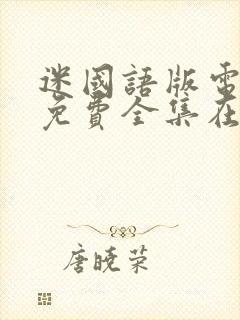 迷國語版電
免費全集在
唐曉荣